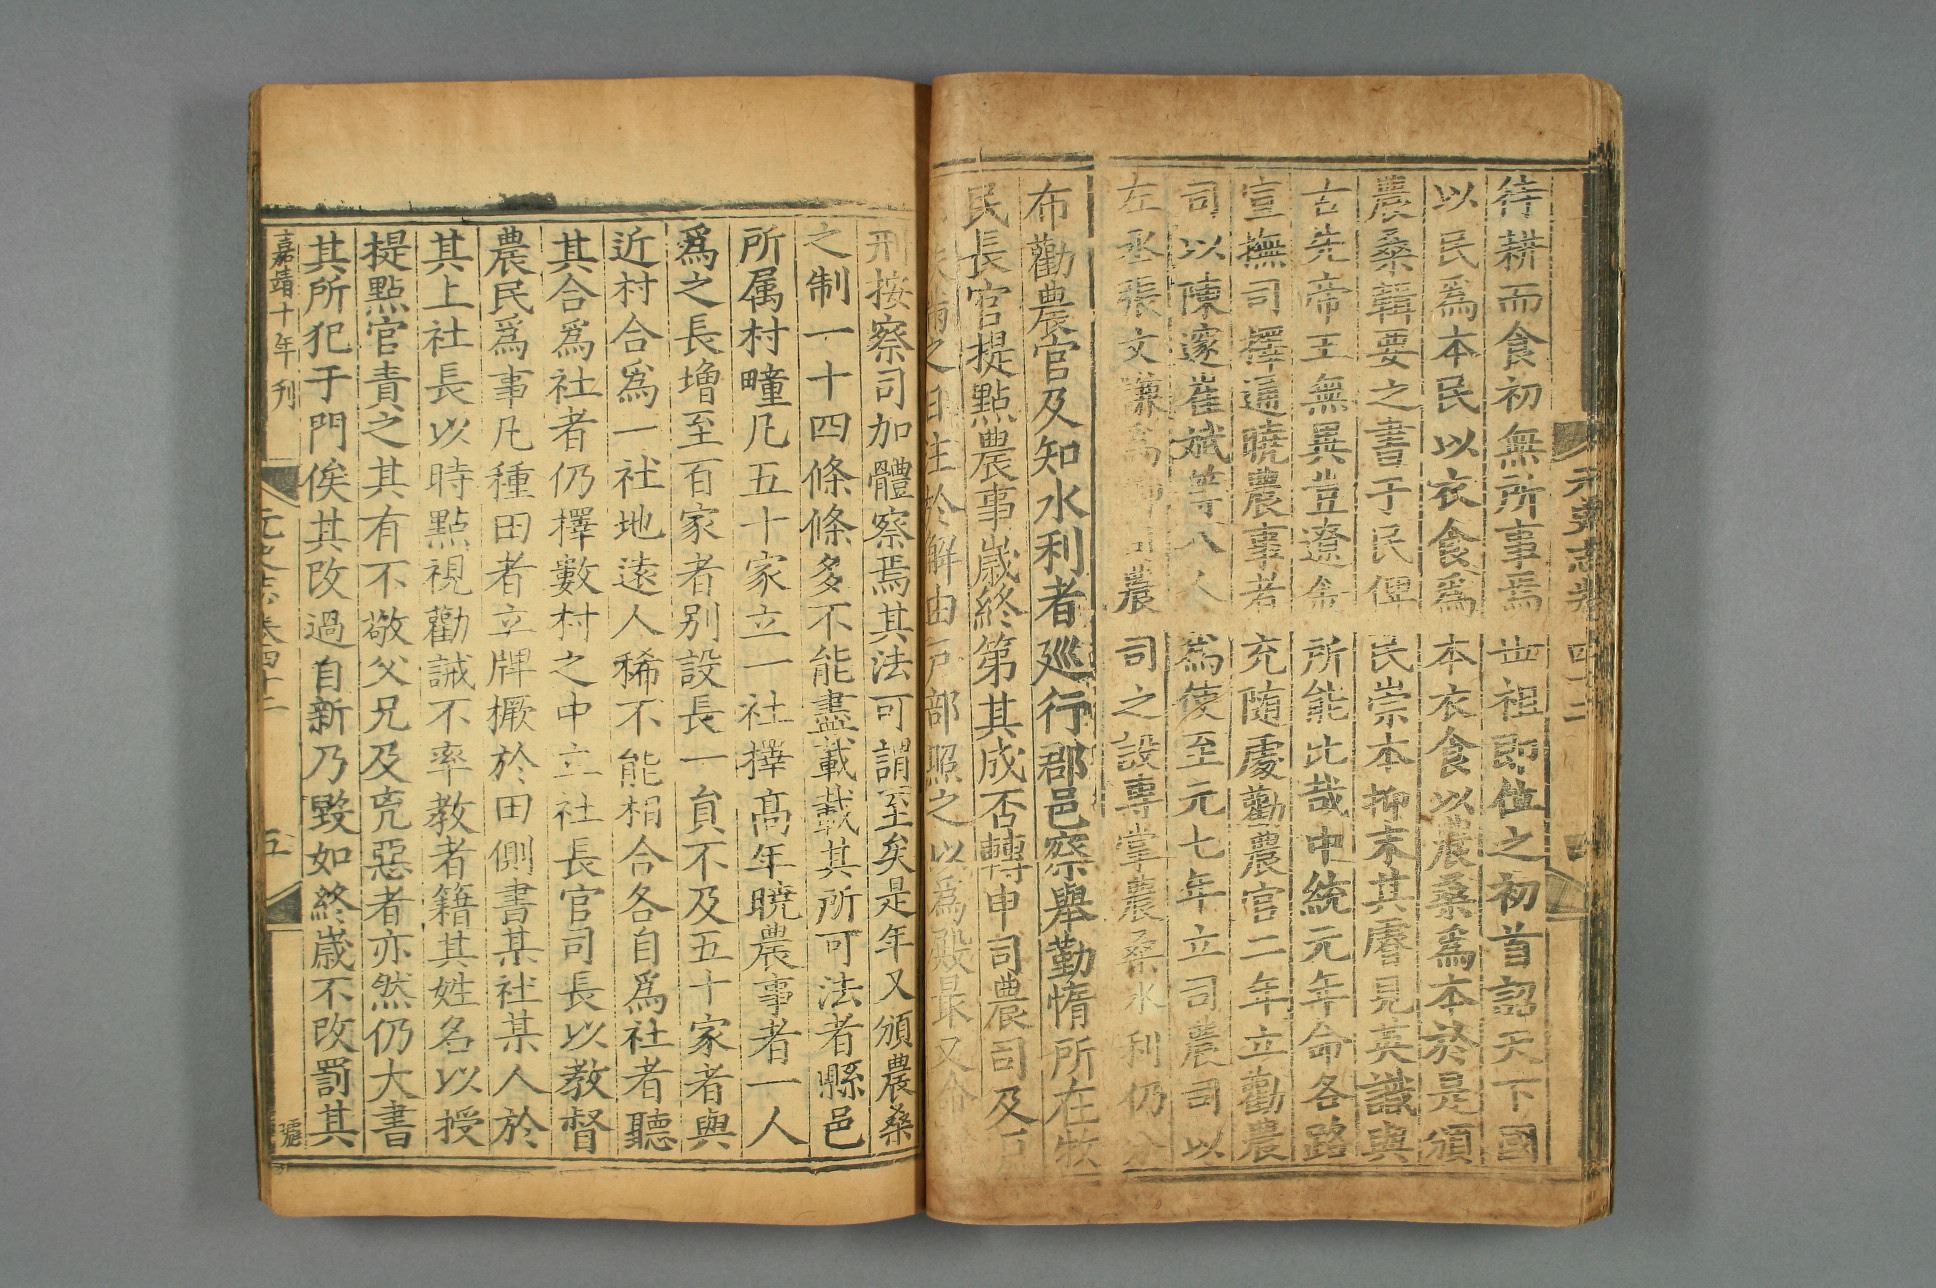 待耕而食初無所事焉世祖即位之初首詔天下國
以民爲本民以衣食爲本衣食以農桑爲本於是頒
農桑輯要之書于民俾民崇本抑末其睿見英識與
古先帝王無異豈遼金所能比哉中統元年命各路
宣撫司擇通曉農事者充隨處勸農官二年立勸農
司以陳邃崔斌等八人爲使至元七年立司農司以
左丞張文謙爲卿司農司之設專掌農桑水利仍分
布勸農官及知水利者巡行郡邑察舉勤惰所在牧
民長官提點農事歲終第其成否轉申司農司及戶
之日注於解由戶部照之以爲殿最又命
刑按察司加體察焉其法可謂至矣是年又頒農桑
之制一十四條條多不能盡載載其所可法者縣邑
所属村疃凡五十家立一社擇高年曉農事者一人
爲之長增至百家者别設長一員不及五十家者與
近村合爲一社地遠人稀不能相合各自爲社者聽
其合爲社者仍擇數村之中立社長官司長以教督
農民爲事凡種田者立牌橛於田側書某社某人於
其上社長以時點視勸誡不率教者籍其姓名以授
提點官責之其有不敬父兄及兇惡者亦然仍大書
其所犯于門俟其改過自新乃毀如終歲不改罰其
嘉靖十年刊
元史志卷四十二
五